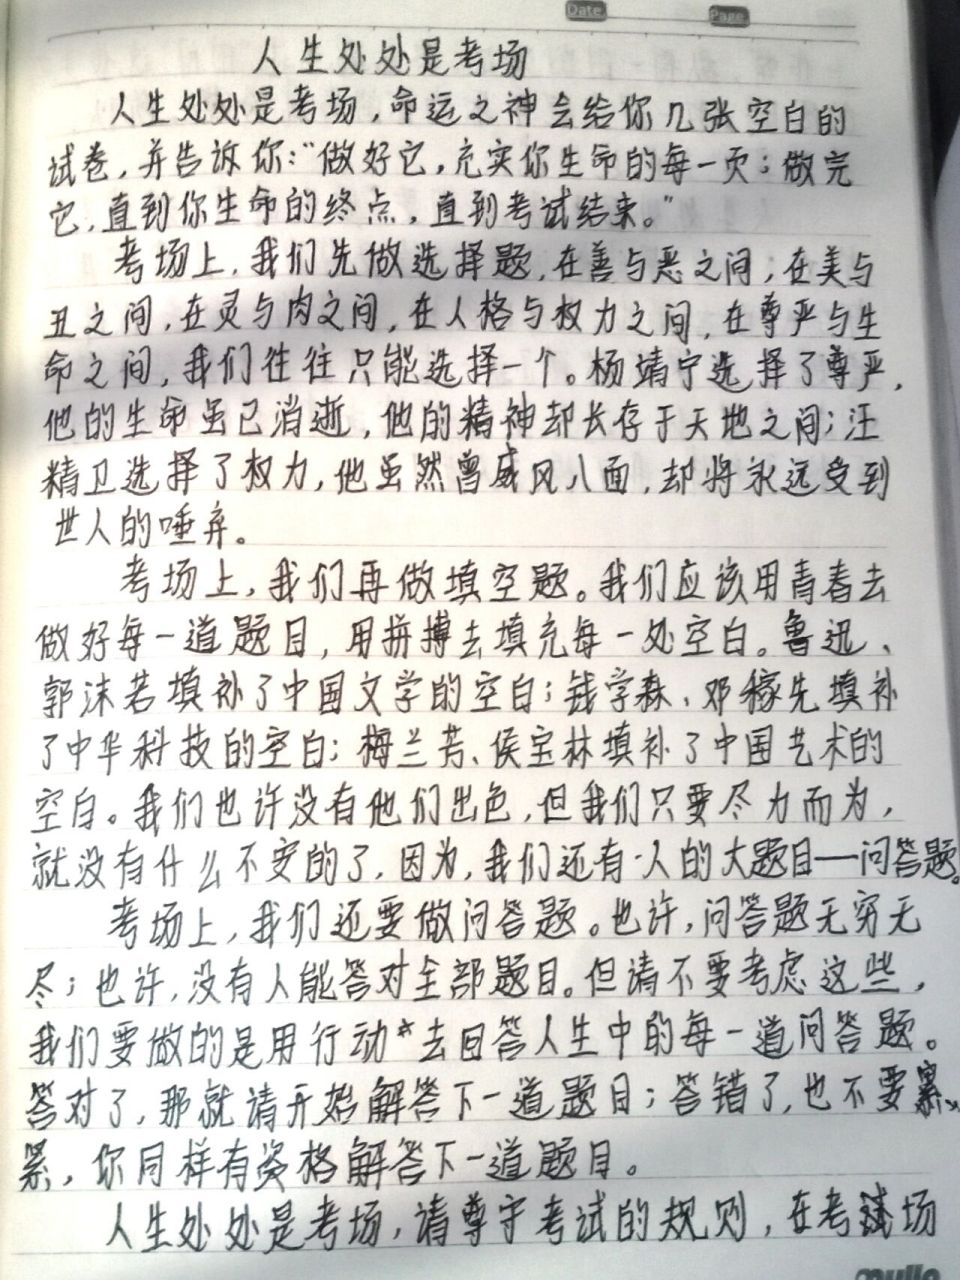 Date
Page
人生处处是考场
人生处处是考场,命运之神会给你几张空白的
试卷,并告诉你:"做好它,充实你生命的每一页;做完
它,直到你生命的终点,直到考试结束。"
考场上,我们先做选择题,在善与恶之间,在美与
丑之间,在灵与肉之间,在人格与权力之间,在尊严与生
命之间,我们往往只能选择一个。杨靖宇选择了尊严,
他的生命虽已消逝,他的精神却长存于天地之间;汪
精卫选择了权力,他虽然曾威风八面,却将永远受到
世人的唾弃。
考场上,我们再做填空题。我们应该用青春去
做好每一道题目,用拼搏去填充每一处空白。鲁迅、
郭沫若填补了中国文学的空白;钱学森、邓稼先填补
了中华科技的空白;梅兰芳、侯宝林填补了中国艺术的
空白。我们也许没有他们出色,但我们只要尽力而为,
就没有什么不安的了,因为,我们还有一人的大题目——问答题。
考场上,我们还要做问答题。也许,问答题无穷无
尽;也许,没有人能答对全部题目。但请不要考虑这些,
我们要做的是用行动*去回答人生中的每一道问答题。
答对了,那就请开始解答下一道题目;答错了,也不要
紧,你同样有资格解答下一道题目。
人生处处是考场,请尊守考试的规则,在考场